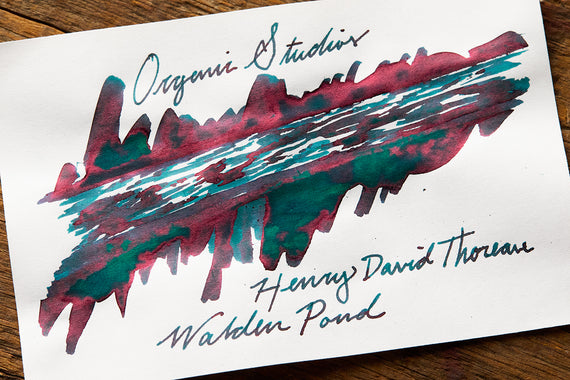 Organic Studios
Henry David Thoreau
Walden Pond